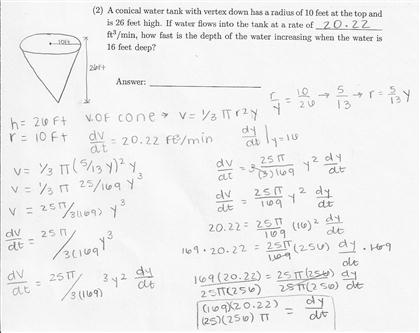 (2) A conical water tank with vertex down has a radius of 10 feet at the top and
is 26 feet high. If water flows into the tank at a rate of 20.22
ft³/min, how fast is the depth of the water increasing when the water is
16 feet deep?
10ft
26ft
Answer:
r/y = 10/26 → 5/13 → r = 5/13 y
h = 26ft V. OF CONE → V = 1/3 π r²y
r = 10ft dV/dt = 20.22 ft³/min dy/dt |y=16
V = 1/3 π (5/13 y)² y
V = 1/3 π 25/169 y³
V = 25π/3(169) y³
dV/dt = 25π/3(169 y³
dV/dt = 25π/3(169) 3y² dy/dt
dV/dt = 3 25π/(3)169 y² dy/dt
dV/dt = 25π/169 y² dy/dt
20.22 = 25π/169 (16)² dy/dt
169 · 20.22 = 25π/169 (256) dy/dt · 169
169(20.22)/25π(256) = 25π(256)/25π(256) dy/dt
(169)(20.22)/(25)(256)π = dy/dt